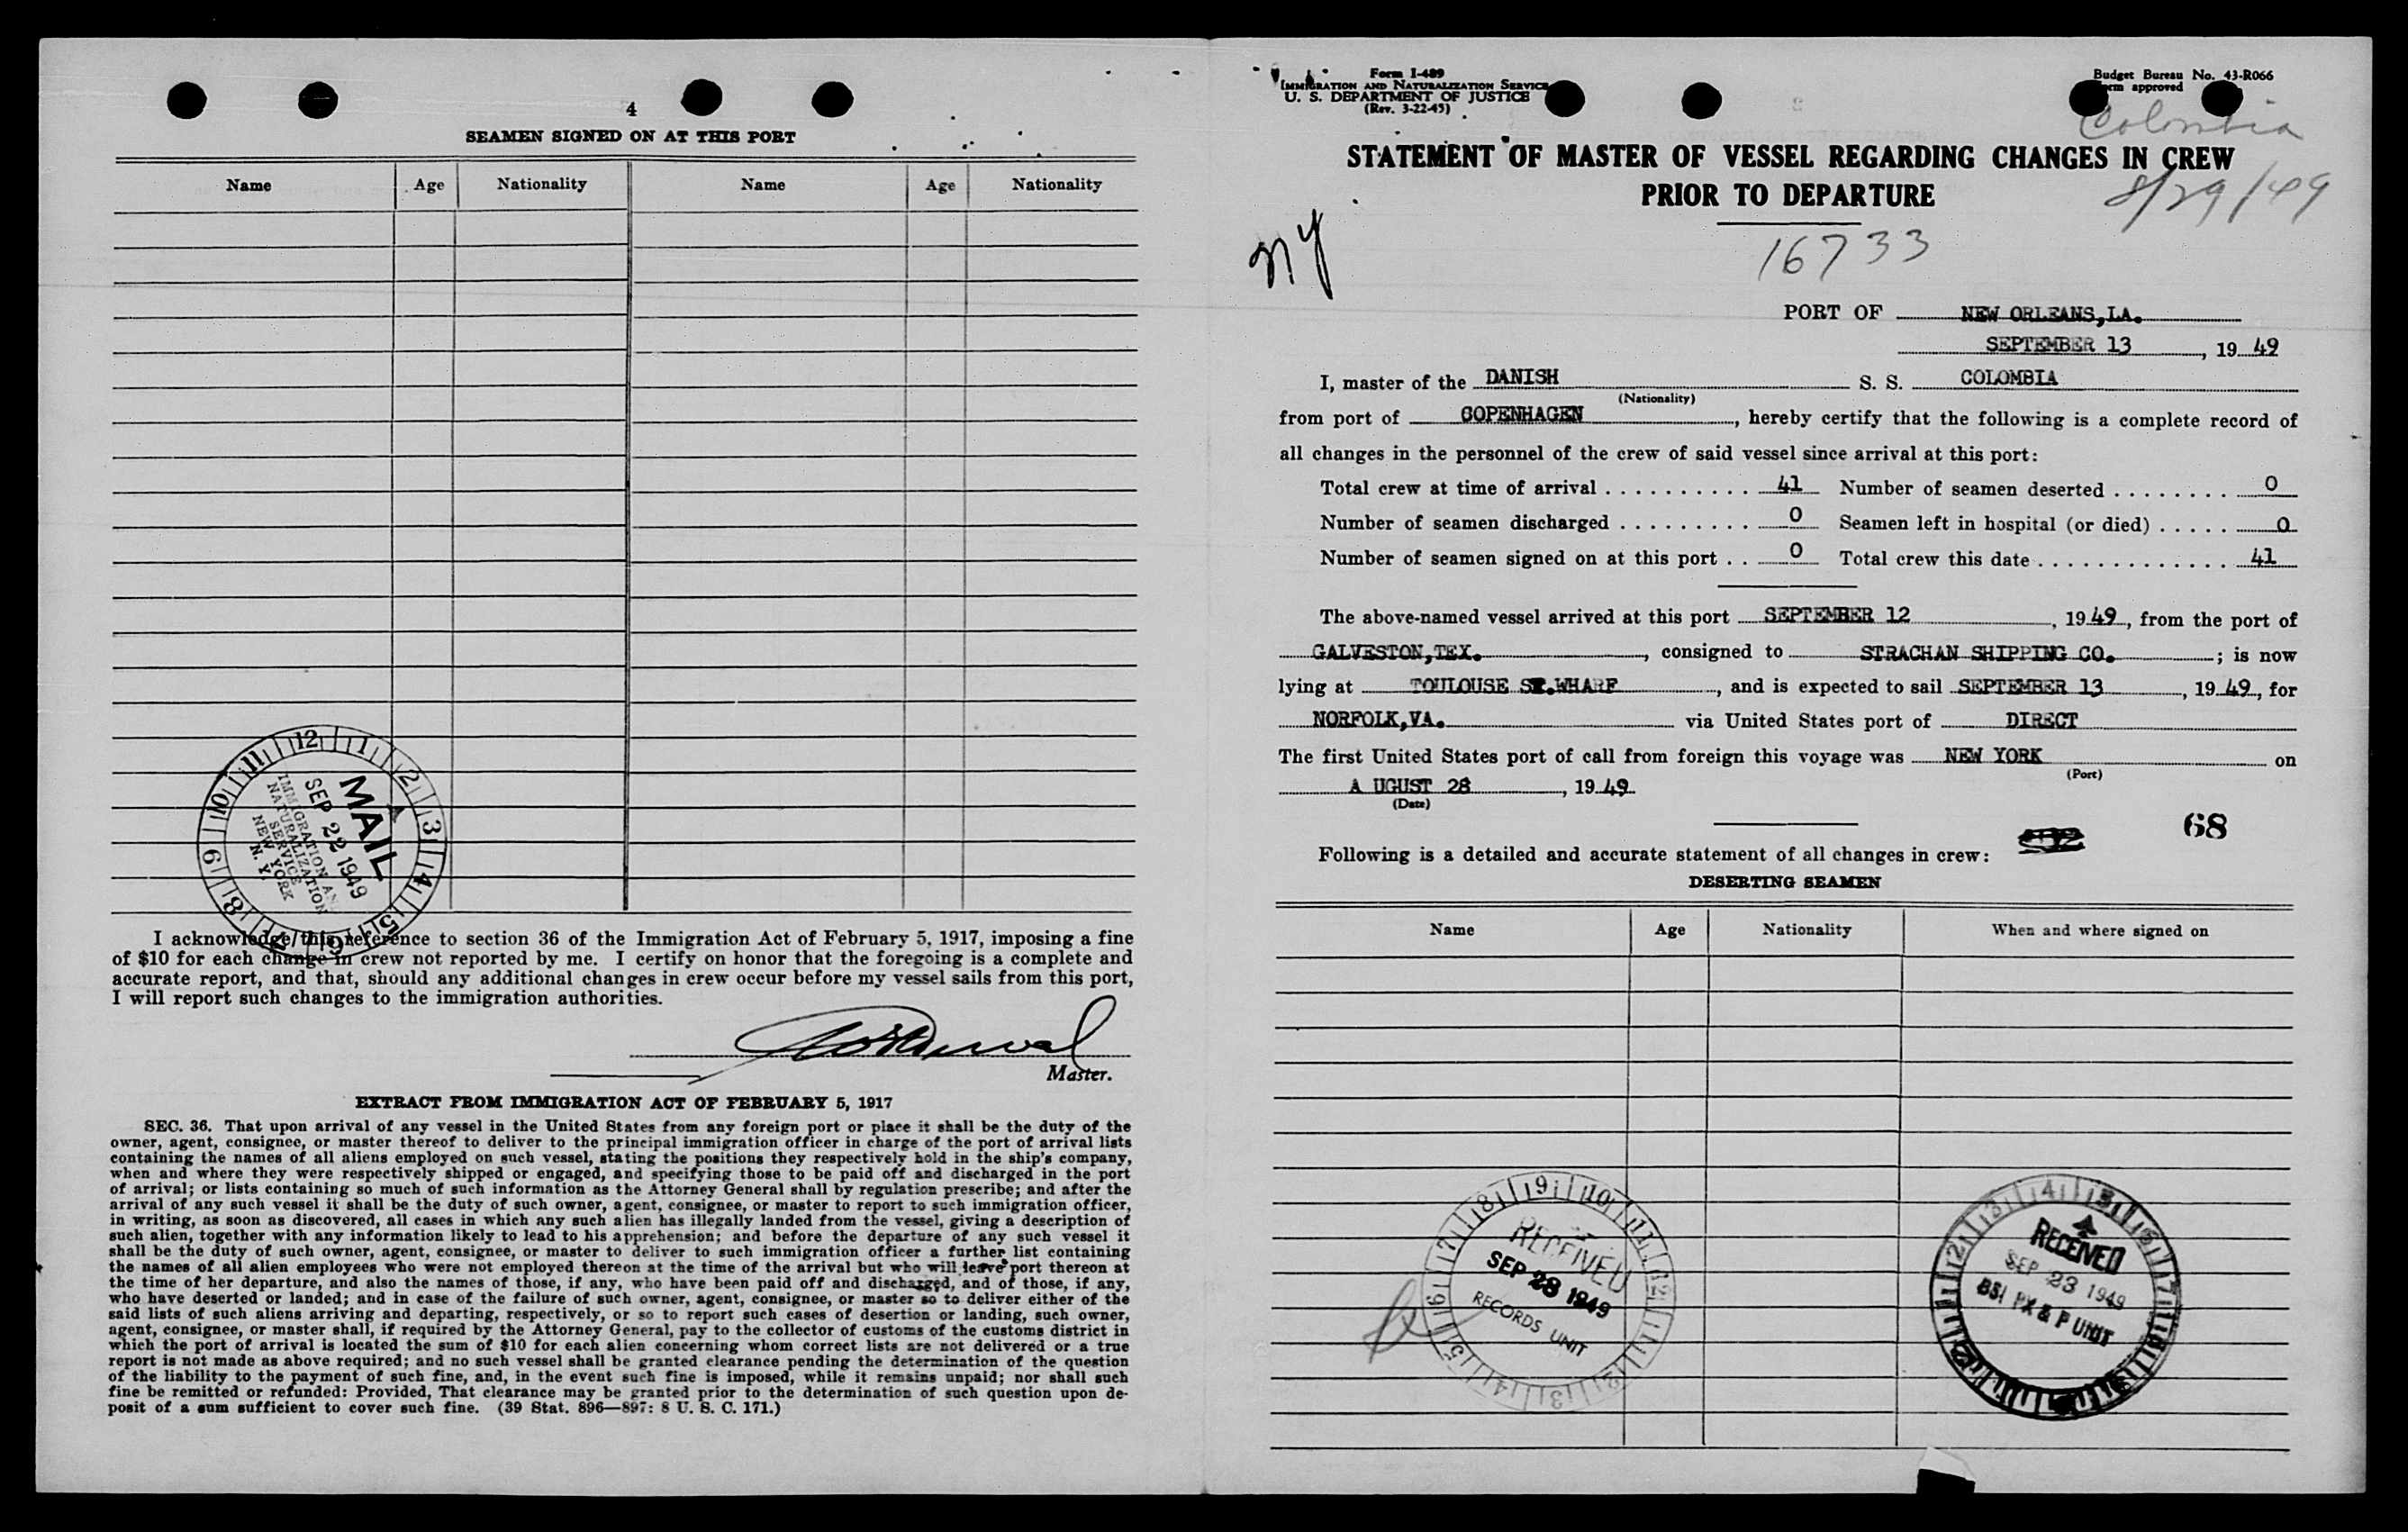 4
SEAMEN SIGNED ON AT THIS PORT
Name Age Nationality Name Age Nationality
12 1 2 3 4 5 6 7 8 9 10 11
MAIL
SEP 22 1949
IMMIGRATION AND
NATURALIZATION
SERVICE
NEW YORK
N. Y.
I acknowledge this reference to section 36 of the Immigration Act of February 5, 1917, imposing a fine
of $10 for each change in crew not reported by me. I certify on honor that the foregoing is a complete and
accurate report, and that, should any additional changes in crew occur before my vessel sails from this port,
I will report such changes to the immigration authorities.
Master.
EXTRACT FROM IMMIGRATION ACT OF FEBRUARY 5, 1917
SEC. 36. That upon arrival of any vessel in the United States from any foreign port or place it shall be the duty of the
owner, agent, consignee, or master thereof to deliver to the principal immigration officer in charge of the port of arrival lists
containing the names of all aliens employed on such vessel, stating the positions they respectively hold in the ship's company,
when and where they were respectively shipped or engaged, and specifying those to be paid off and discharged in the port
of arrival; or lists containing so much of such information as the Attorney General shall by regulation prescribe; and after the
arrival of any such vessel it shall be the duty of such owner, agent, consignee, or master to report to such immigration officer,
in writing, as soon as discovered, all cases in which any such alien has illegally landed from the vessel, giving a description of
such alien, together with any information likely to lead to his apprehension; and before the departure of any such vessel it
shall be the duty of such owner, agent, consignee, or master to deliver to such immigration officer a further list containing
the names of all alien employees who were not employed thereon at the time of the arrival but who will leave port thereon at
the time of her departure, and also the names of those, if any, who have been paid off and discharged, and of those, if any,
who have deserted or landed; and in case of the failure of such owner, agent, consignee, or master so to deliver either of the
said lists of such aliens arriving and departing, respectively, or so to report such cases of desertion or landing, such owner,
agent, consignee, or master shall, if required by the Attorney General, pay to the collector of customs of the customs district in
which the port of arrival is located the sum of $10 for each alien concerning whom correct lists are not delivered or a true
report is not made as above required; and no such vessel shall be granted clearance pending the determination of the question
of the liability to the payment of such fine, and, in the event such fine is imposed, while it remains unpaid; nor shall such
fine be remitted or refunded: Provided, That clearance may be granted prior to the determination of such question upon de-
posit of a sum sufficient to cover such fine. (39 Stat. 896—897: 8 U. S. C. 171.)
Form I-489
IMMIGRATION AND NATURALIZATION SERVICE
U. S. DEPARTMENT OF JUSTICE
(Rev. 3-22-45)
Budget Bureau No. 43-R066
Form approved
Colombia
STATEMENT OF MASTER OF VESSEL REGARDING CHANGES IN CREW
PRIOR TO DEPARTURE
8/29/49
NY
16733
PORT OF NEW ORLEANS, LA.
SEPTEMBER 13, 19 49
I, master of the DANISH S. S. COLOMBIA
(Nationality)
from port of COPENHAGEN, hereby certify that the following is a complete record of
all changes in the personnel of the crew of said vessel since arrival at this port:
Total crew at time of arrival . . . . . . . . . . 41 Number of seamen deserted . . . . . . . . 0
Number of seamen discharged . . . . . . . . . 0 Seamen left in hospital (or died) . . . . . 0
Number of seamen signed on at this port . . 0 Total crew this date . . . . . . . . . . . . . 41
The above-named vessel arrived at this port SEPTEMBER 12, 19 49, from the port of
GALVESTON, TEX., consigned to STRACHAN SHIPPING CO.; is now
lying at TOULOUSE ST. WHARF, and is expected to sail SEPTEMBER 13, 19 49, for
NORFOLK, VA. via United States port of DIRECT
The first United States port of call from foreign this voyage was NEW YORK on
(Port)
A UGUST 28, 19 49
(Date)
68
Following is a detailed and accurate statement of all changes in crew:
DESERTING SEAMEN
Name Age Nationality When and where signed on
RECEIVED
SEP 28 1949
RECORDS UNIT
RECEIVED
SEP 23 1949
BSI PX & P UNIT